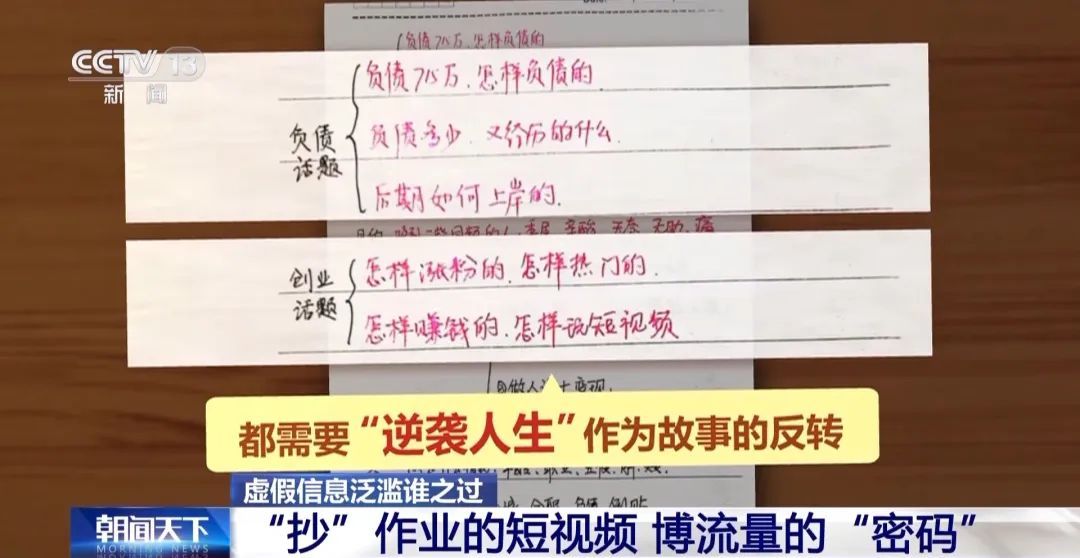 CCTV 13
新闻
负债715万、怎样负债的
负债话题
负债715万、怎样负债的
负债多少、又经历的什么
后期如何上岸的
创业话题
怎样涨粉的、怎样热门的
怎样赚钱的、怎样玩短视频
都需要“逆袭人生”作为故事的反转
虚假信息泛滥谁之过
朝闻天下
MORNING NEWS
“抄”作业的短视频 博流量的“密码”